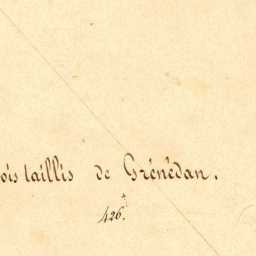 ois taillis de Grénédan.
426.